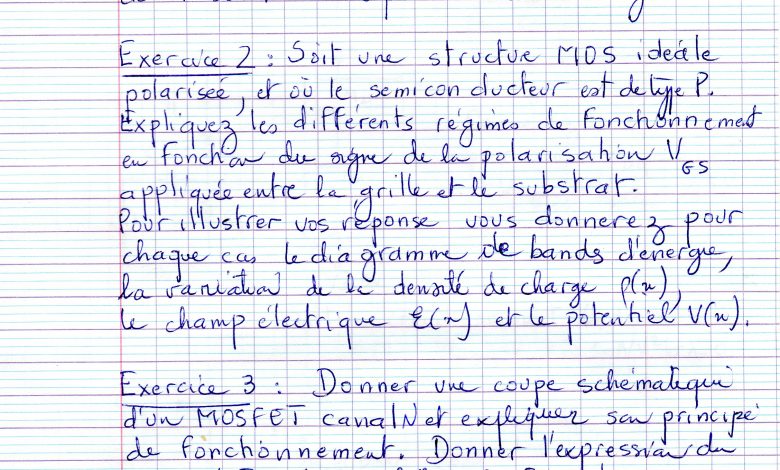 Exercice 2 : Soit une structure MOS ideále
polarisée, et où le semiconducteur est de type P.
Expliquez les différents régimes de fonctionnement
en fonction du signe de la polarisation VGS
appliquée entre la grille et le substrat.
Pour illustrer vos réponse vous donnerez pour
chaque cas le diagramme de bands d'énergie,
la variation de la densité de charge ρ(x),
le champ électrique ξ(x) et le potentiel V(x).
Exercice 3 : Donner une coupe schématique
d'un MOSFET canal N et expliquer son principe
de fonctionnement. Donner l'expression du